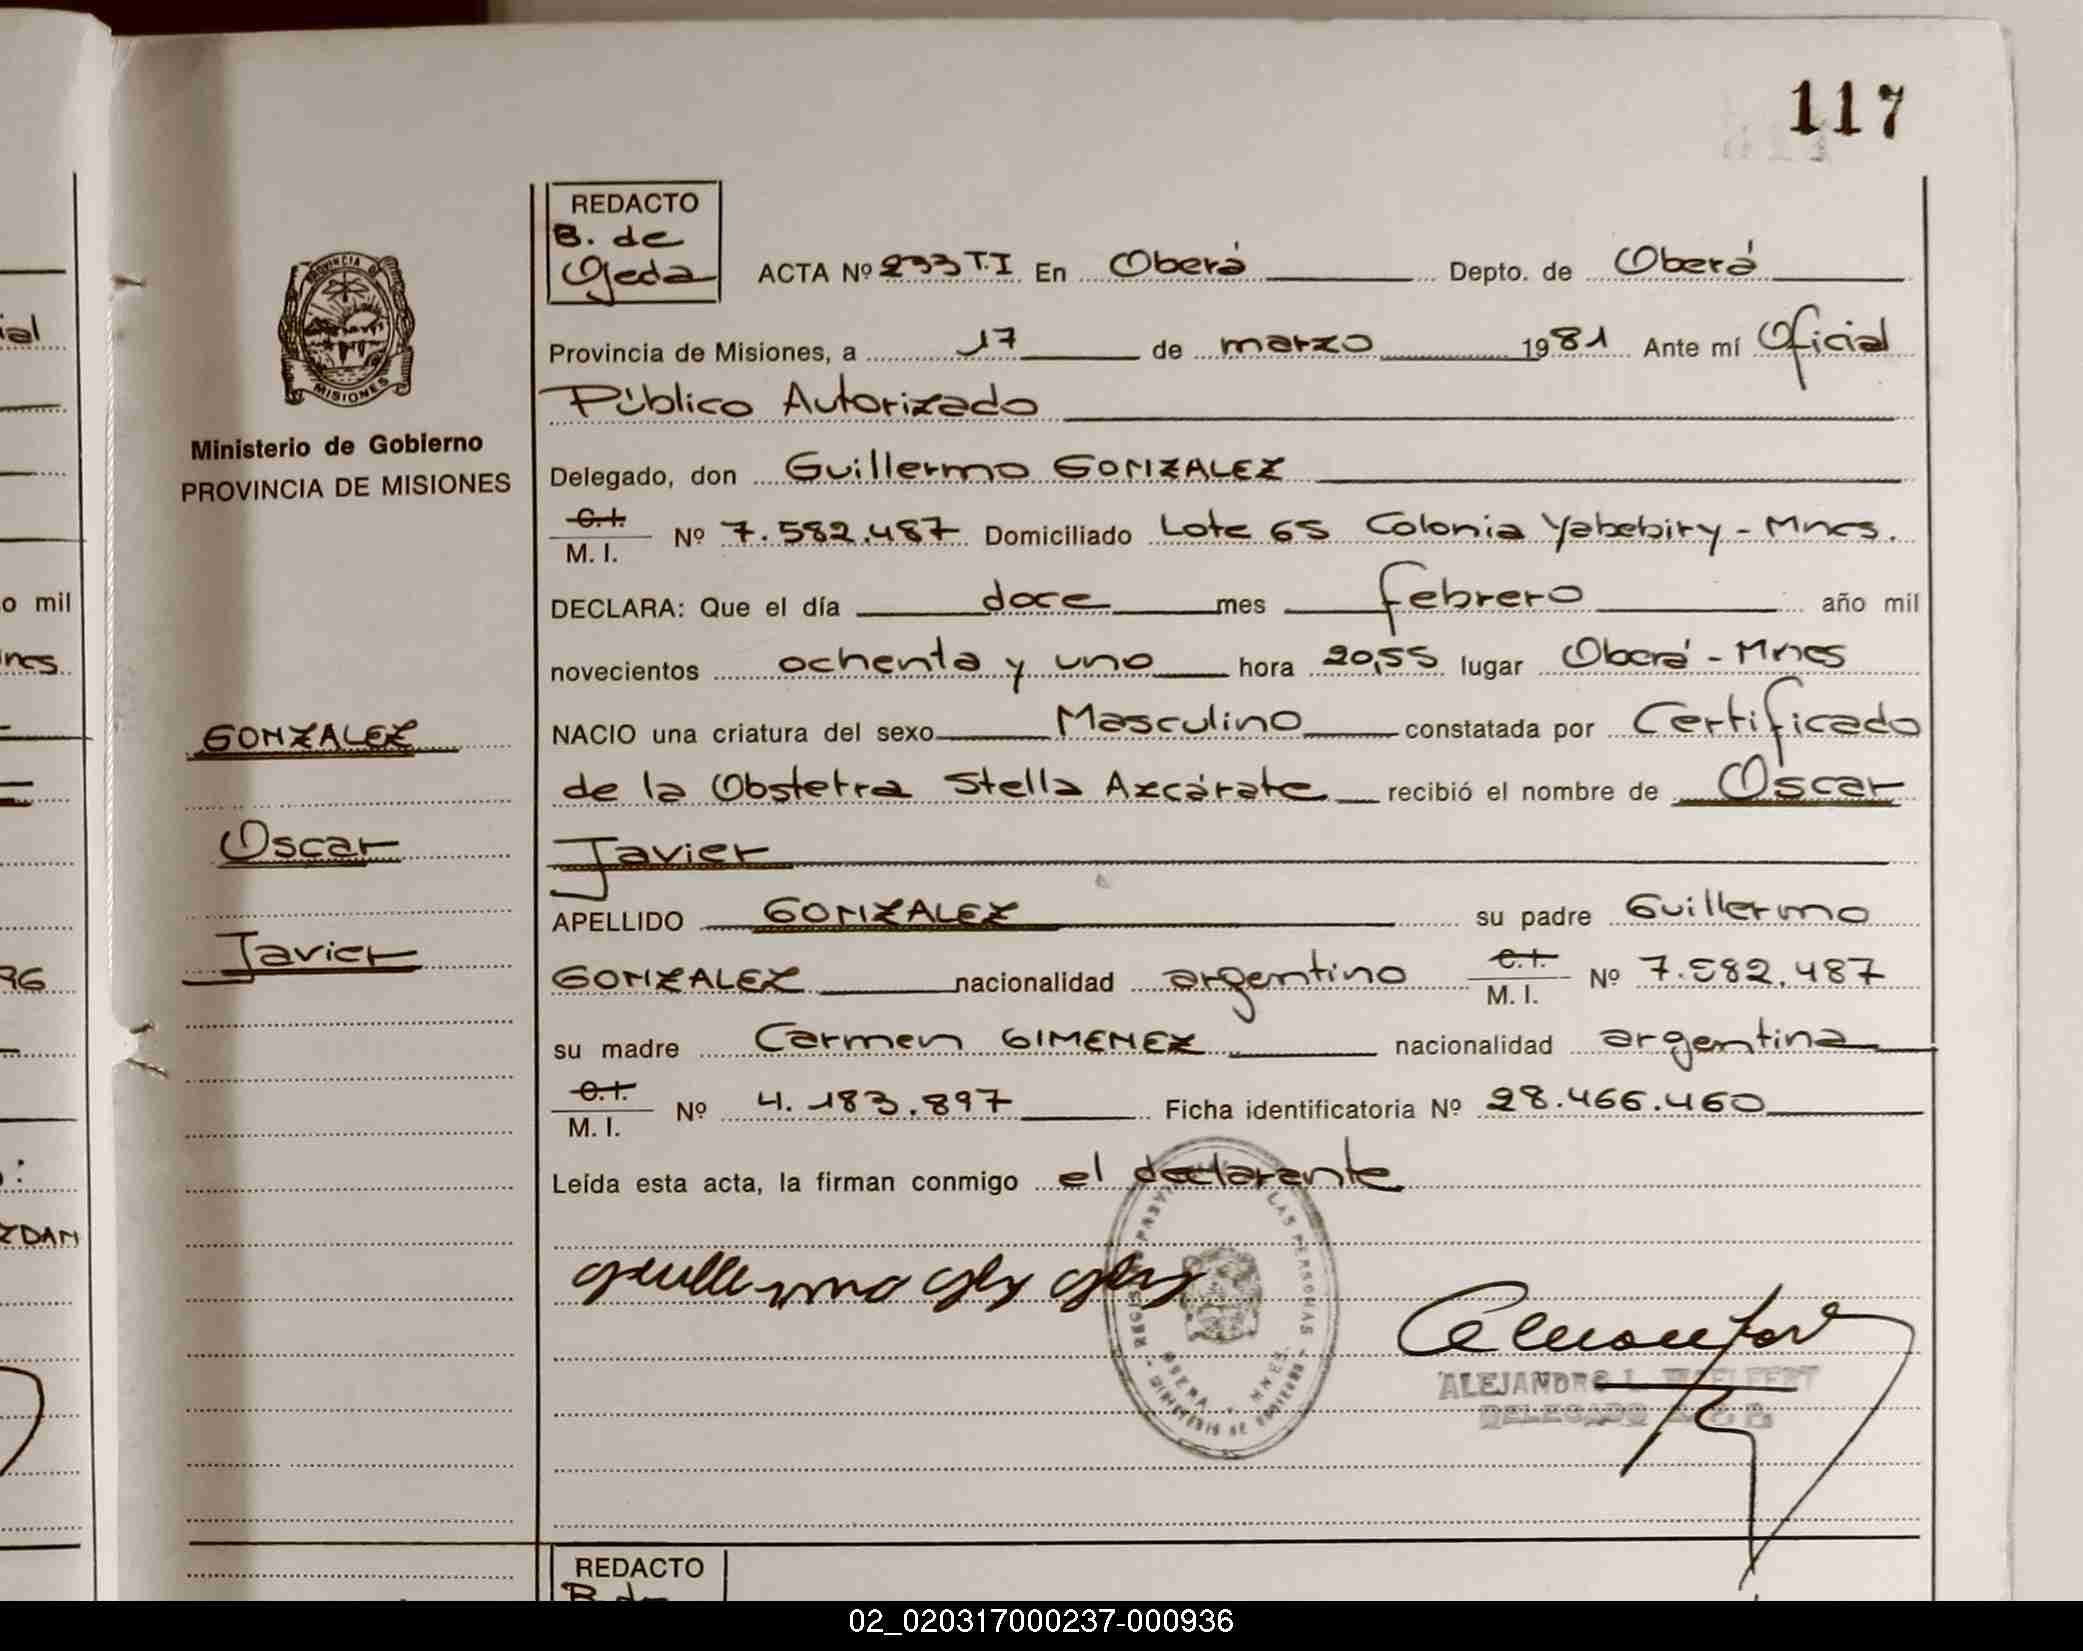 117
REDACTO
B. de
Ojeda
ACTA Nº 233 T.I En Oberá Depto. de Oberá
ial
Provincia de Misiones, a 17 de marzo 1981 Ante mí Oficial
Público Autorizado
Ministerio de Gobierno
PROVINCIA DE MISIONES
Delegado, don Guillermo GONZALEZ
C.I.
M. I. Nº 7.582.487 Domiciliado Lote 65 Colonia Yabebiry - Mnes.
o mil
DECLARA: Que el día doce mes febrero año mil
nes.
novecientos ochenta y uno hora 20,55 lugar Oberá - Mnes
GONZALEZ
NACIO una criatura del sexo Masculino constatada por Certificado
de la Obstetra Stella Azcárate recibió el nombre de Oscar
Oscar
Javier
APELLIDO GONZALEZ su padre Guillermo
Javier
96
GONZALEZ nacionalidad argentino C.I.
M. I. Nº 7.582.487
su madre Carmen GIMENEZ nacionalidad argentina
C.I.
M. I. Nº 4.183.897 Ficha identificatoria Nº 28.466.460
Leída esta acta, la firman conmigo el declarante
ZDAN
PROVINCIA DE
MISIONES
LAS PERSONAS
OBERA - MNES.
MINISTERIO DE GOBIERNO
guillermo
ALEJANDRO L.
DELEGADO
REDACTO
B. de
02_020317000237-000936